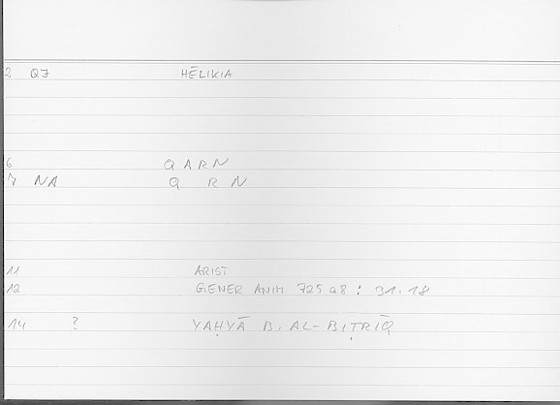 2 QZ HĒLIKIA
6 QARN
7 NA Q R N
11 ARIST
12 GENER ANIM 725a8 : 31.18
14 ? YAḤYĀ B. AL-BIṬRĪQ